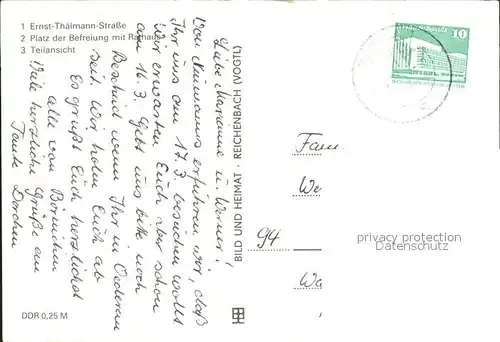 1 Ernst-Thälmann-Straße
2 Platz der Befreiung mit Rathaus
3 Teilansicht
Liebe Marianne u. Werner!
Von Neumanns erfuhren wir, daß
Ihr uns am 17.3. besuchen wollt
Wir erwarten Euch aber schon
am 16.3. Gebt uns bitte noch
Bescheid wann Ihr in Oederan
seid. Wir holen Euch ab
Es grüßt Euch herzlichst
alle von Börnichen
Viele herzliche Grüße an
Tante Dorchen
DDR 0,25 M
BILD UND HEIMAT · REICHENBACH (VOGTL)
10
Fam.
We
94
Wa
privacy protection
Datenschutz